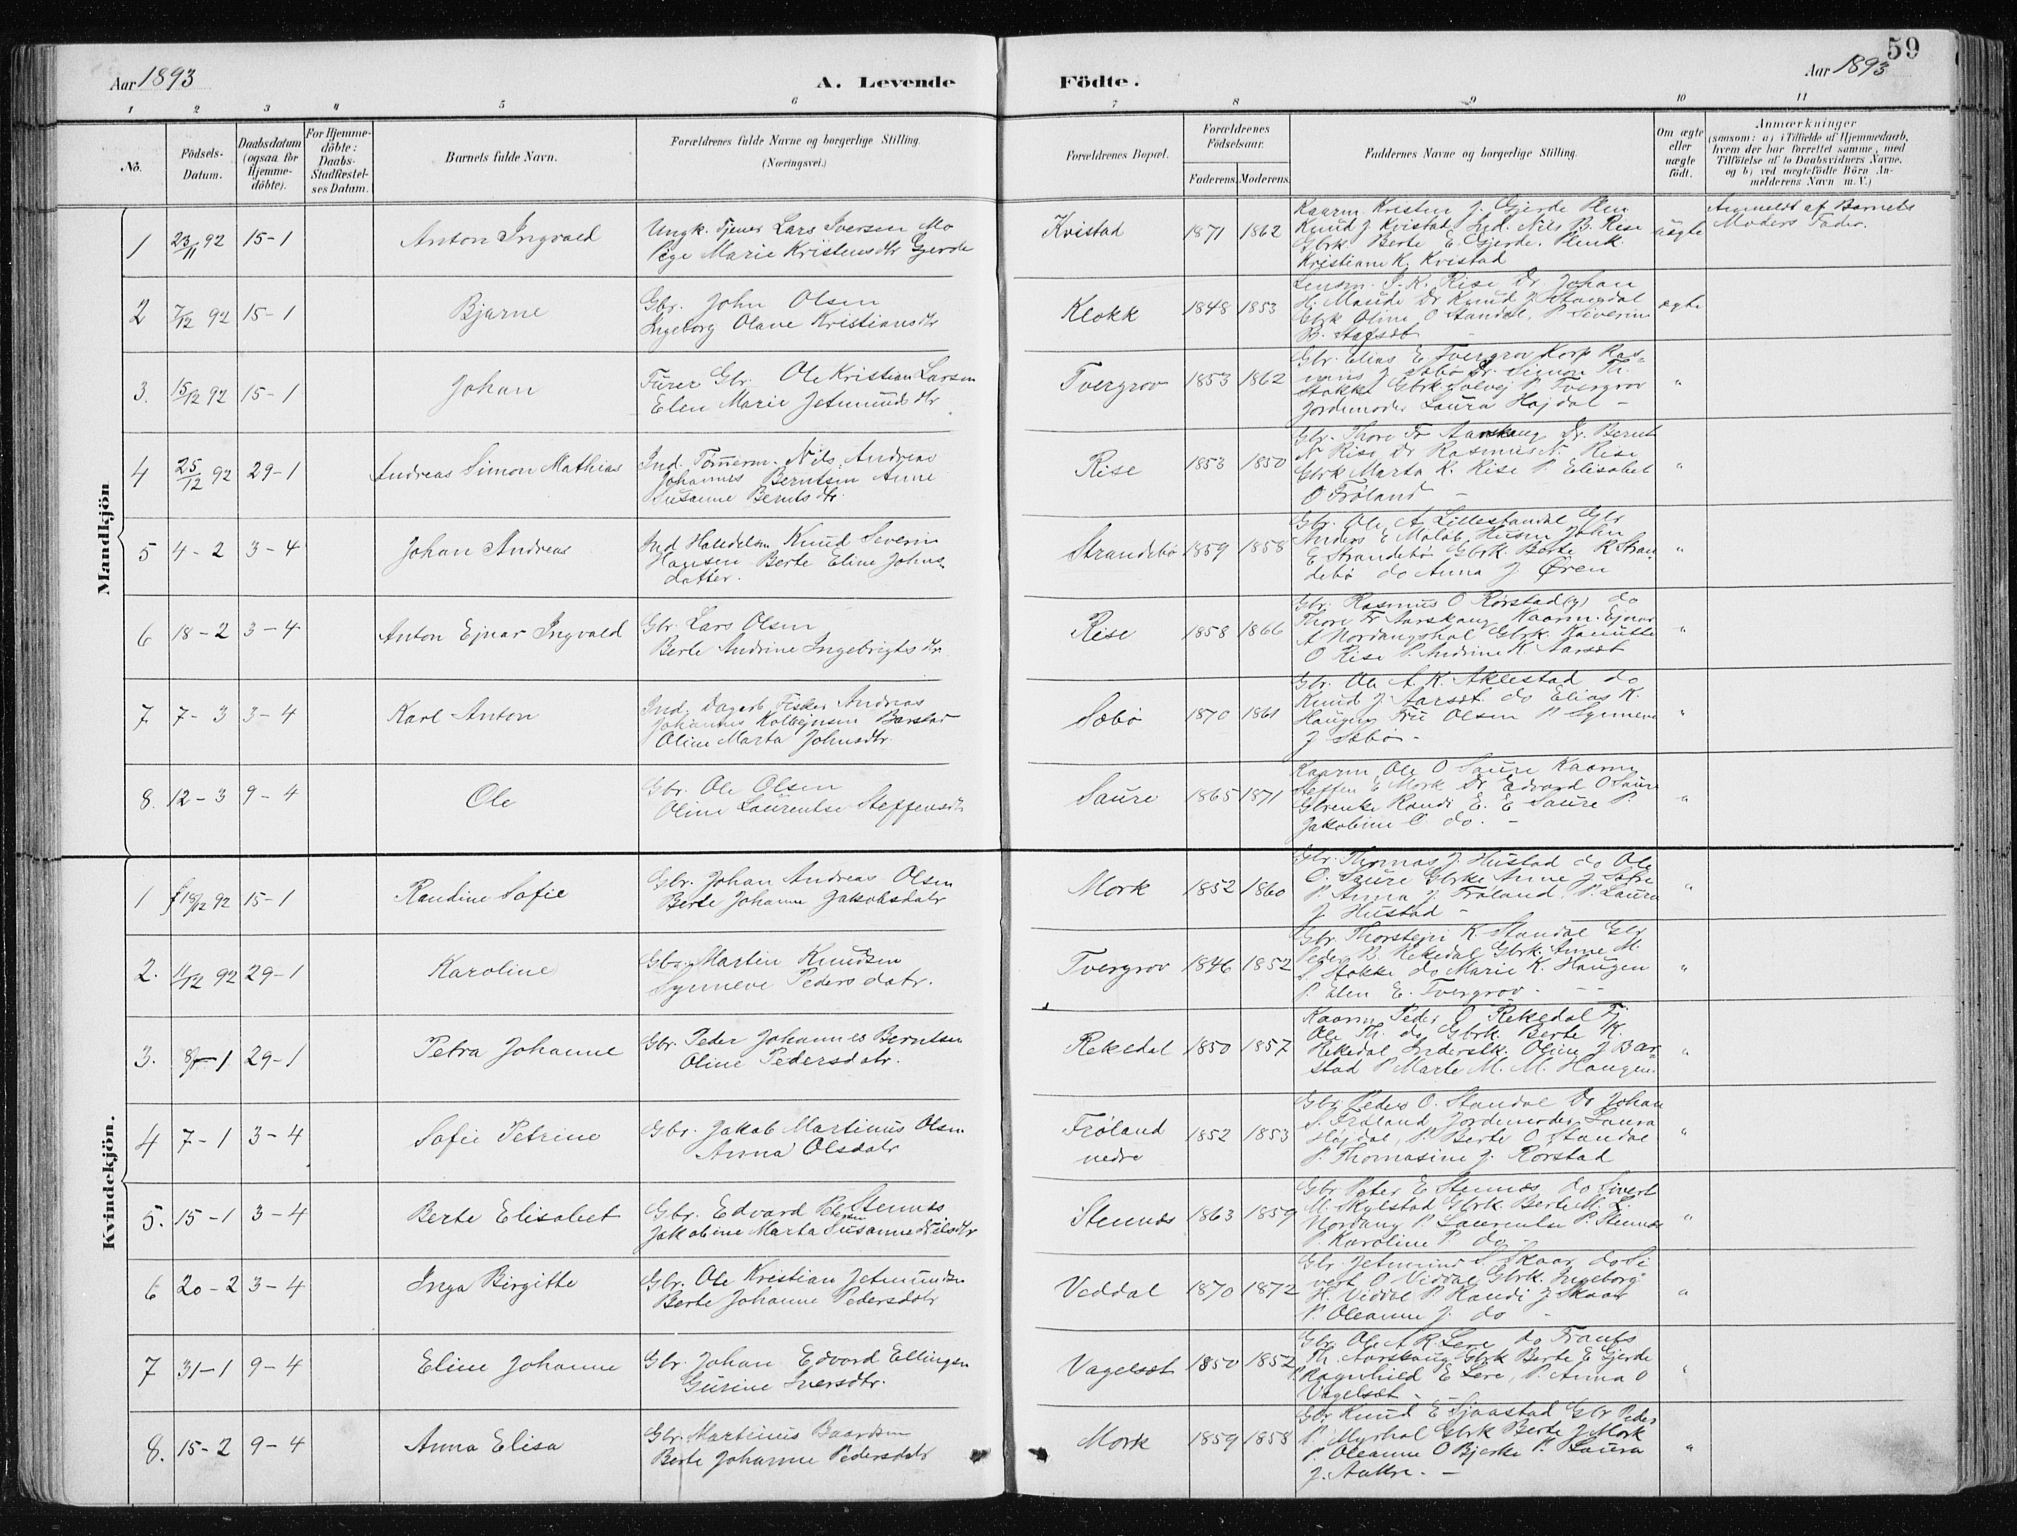 59
Aar 1893
A. Levende Födte.
Aar 1893
1 2 3 4 5 6 7 8 9 10 11
No.
Födsels-Datum.
Daabsdatum (ogsaa for Hjemme-döbte).
For Hjemme-döbte: Daabs-Stadfæstel-ses Datum.
Barnets fulde Navn.
Forældrenes fulde Navne og borgerlige Stilling. (Næringsvei.)
Forældrenes Bopæl.
Forældrenes Födselsaar.
Faderens. Moderens.
Faddernes Navne og borgerlige Stilling.
Om ægte eller uægte født.
Anmærkninger
(saasom: a) i Tilfælde af Hjemmedaab,
hvem der har forrettet samme, med
Tilföielse af to Daabsvidners Navne,
og b) ved uægtefödte Börn An-
melderens Navn m. V.)
Mandkjön
1 23/11 92 15-1 Anton Ingvald
Ungk. Tjener Lars Iversen Mo
Pige Marie Kristensdtr Gjerde
Kvistad 1871 1862
Kaarm. Kristen J. Gjerde
Knud J Kvistad Ind. Nils B. Rise
Gbrk Berte E. Gjerde.
Kristiane K. Kvistad
uægte
Anmeldt af Barnets
Moders Fader.
2 7/12 92 15-1 Bjarne
Gbr. John Olsen
Ingeborg Olave Kristiansdtr
Klokk 1848 1853
Rise Dr Johan
Dr Knud J Standal
Gbrk Oline O Standal, P Severine
ægte
3. 15/12 92 15-1 Johan
Furer Gbr. Ole Kristian Larsen
Elen Marie Jetmundsdtr
Tvergrov 1853 1862
Gbr. Elias E Tvergrov Korp Ras-
mus J Sæbø Dr. Simon Th.
Stokke Gbrk Solvej P Tvergrov
Jordemoder Laura Højdal -
"
4 25/12 92 29-1 Andreas Simon Mathias
Ind. Tømerm. Nils Andreas
Johannes Berntsen Anne
Susanne Berntsdtr.
Rise 1853 1850
Gbr. Thore Fr Aarskaug Dr. Bernt
N Rise Dr Rasmus N. Rise
Gbrk Marta K. Rise P. Elisabet
O Frøland -
"
5 4-2 3-4 Johan Andreas
Ind Handelsm Knud Severin
Hansen Berte Eline Johns-
datter.
Strandebø 1859 1858
Gbr. Ole A Lillestandal Gbr
Anders E Husm John
E Strandebø Gbrk. Berte K Stran
debø do Anna J. Øren
"
6 18-2 3-4 Anton Ejnar Ingvald
Gbr Lars Olsen
Berte Andrine Ingebrigtsdtr.
Rise 1858 1866
Gbr. Rasmus O Rørstad (y) do
Thore Fr Aarskaug Kaarm. Ejnar
A Nordangshol Gbrk. Kanutte
O Rise P. Andrine K Aarsæt
"
7 7-3 3-4 Karl Anton
Ind. Dagarb Fisker Andreas
Johannes Kolbejnsen Barstad
Oline Marta Johnsdtr.
Sæbø 1870 1861
Gbr. Ole A. K. Aklestad do
Knud J. Aarsæt do Elias K.
Haugen Fru Olsen P. Synneve
J Sæbø -
"
8. 12-3 9-4 Ole
Gbr. Ole Olsen
Oline Laurentse Steffensdtr
Saure 1865 1871
Kaarm Ole O Saure Kaarm
Steffen E Mork Dr Edvard O Saure
Gbrenke Randi E. E Saure P.
Jakobine O. do. -
"
Kvindekjön.
1 18/12 92 15-1 Randine Sofie
Gbr. Johan Andreas Olsen
Berte Johanne Jakobsdatr
Mork 1852 1860
Gbr. Thomas J. Hustad do Ole
O. Saure Gbrke Anne J Sætre
P Anna J. Frøland. P. Laura
J. Hustad -
"
2. 11/12 92 29-1 Karoline
Gbr Martin Knudsen
Synneve Pedersdatr.
Tvergrov 1846 1852
Gbr. Thorstein K Standal Gbr
Peder B. Rekedal Gbrk. Anne M.
Stokke do Marie K. Haugen
P. Elen E. Tvergrov. - -
"
3. 8-1 29-1 Petra Johanne
Gbr. Peder Johannes Berntsen
Oline Pedersdatr.
Rekedal 1850 1857
Kaarm Peder O Rekedal
Ole Th. do Gbrk. Berte K.
Rekedal Inderstk. Oline J Bar-
stad P Marte M. M. Haugen.
"
4 7-1 3-4 Sofie Petrine
Gbr. Jakob Martinus Olsen
Anna Olsdatr
Frøland
nedre 1852 1853
Gbr Peder O. Standal Do Johan
S. Frøland Jordemoder Laura
Højdal, P. Berte O. Standal
P. Thomasine J. Rørstad
"
5. 15-1 3-4 Berte Elisabet
Gbr. Edvard Petersen Stennes
Jakobine Marta Susanne Nilsdtr
Stennes 1863 1859
Gbr Peter E Stennes do Sivert
M. Skylstad Gbrk. Berte M. L.
Nordang P Laurentse P. Stennes
P Karoline P do
"
6 20-2 3-4 Inga Birgitte
Gbr. Ole Kristian Jetmundsen
Berte Johanne Pedersdatr
Veddal 1870 1872
Gbr. Jetmund S Skaar do Si
vert O Viddal Gbrk. Ingeborg
H. Viddal P. Randi J. Skaar
P. Oleanne J. do -
"
7 31-1 9-4 Eline Johanne
Gbr. Johan Edvard Ellingsen
Gurine Iversdtr.
Vagelsæt 1850 1852
Gbr. Ole A K Lere do Frants
Th. Aarskaug Gbrk Berte E Gjerde
P. Ragnhild E Lere, P. Anna O
Vagelsæt -
"
8. 15-2 9-4 Anna Elisa
Gbr Martinus Baardsen
Berte Johanne Pedersdatr
Mork 1859 1858
Gbr Knud E Sjaastad Gbr Peder
P. Myrhol Gbrk Berte J Mork
P. Oleanne O Bjerke P. Laura
J. Aakre. -
"